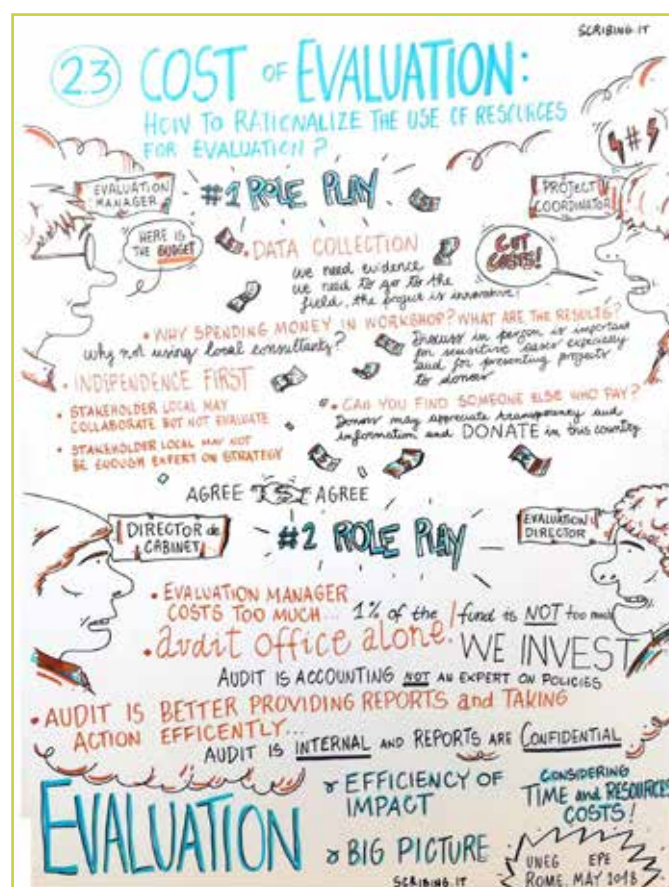 SCRIBING.IT
2.3 COST OF EVALUATION:
HOW TO RATIONALIZE THE USE OF RESOURCES
FOR EVALUATION?
EVALUATION
MANAGER
#1 ROLE PLAY
PROJECT
COORDINATOR
HERE IS
THE BUDGET
CUT
COSTS!
• DATA COLLECTION
we need evidence
we need to go to the
field, the project is innovative!
• WHY SPENDING MONEY IN WORKSHOP? WHAT ARE THE RESULTS?
why not using local consultants?
Discuss in person is important
for sensitive cases especially
and for presenting projects
to donors
• INDEPENDENCE FIRST
• STAKEHOLDER LOCAL MAY
COLLABORATE BUT NOT EVALUATE
• STAKEHOLDER LOCAL MAY NOT
BE ENOUGH EXPERT ON STRATEGY
• CAN YOU FIND SOMEONE ELSE WHO PAY?
Donors may appreciate transparency and
information and DONATE in this country
AGREE
AGREE
DIRECTOR de
CABINET
#2 ROLE PLAY
EVALUATION
DIRECTOR
• EVALUATION MANAGER
COSTS TOO MUCH... 1% of the fund is NOT too much
• audit office alone. WE INVEST
AUDIT IS ACCOUNTING NOT AN EXPERT ON POLICIES
• AUDIT IS BETTER PROVIDING REPORTS and TAKING
ACTION EFFICENTLY...
AUDIT IS INTERNAL AND REPORTS ARE CONFIDENTIAL
EVALUATION
EFFICIENCY OF
IMPACT
BIG PICTURE
CONSIDERING
TIME and RESOURCES
COSTS!
UNEG EPE
ROME, MAY 2018
SCRIBING.IT